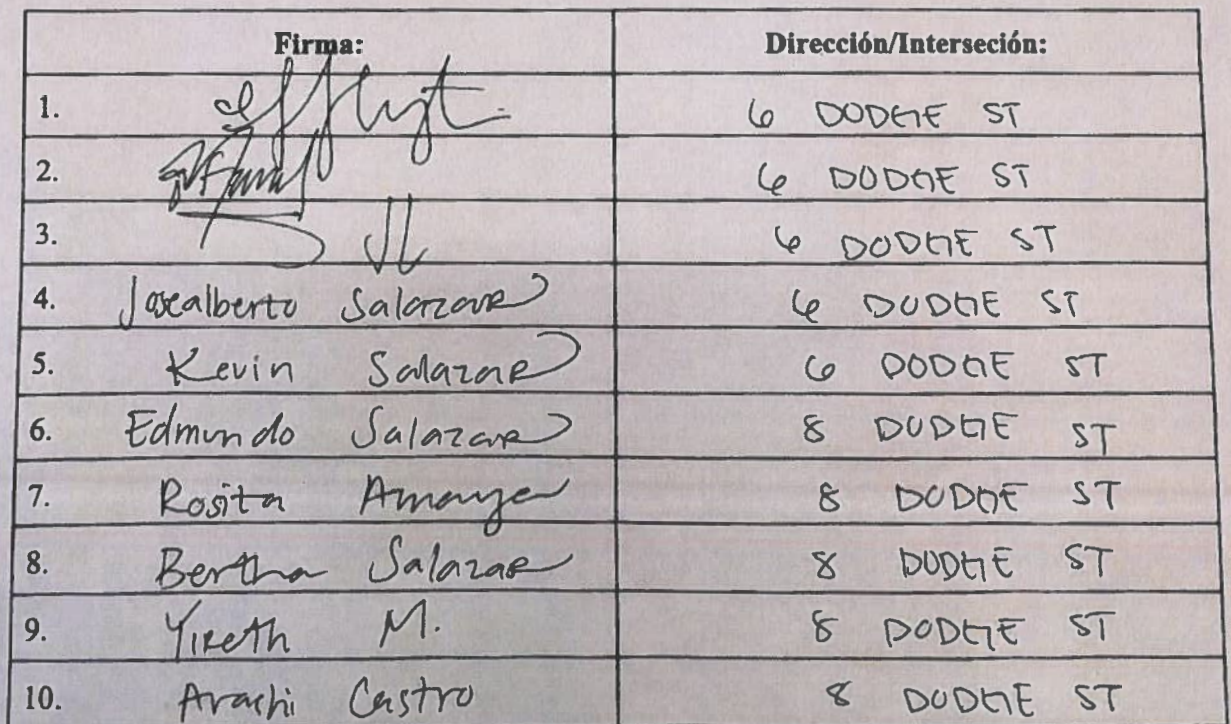 Firma: Dirección/Interseción:
1. 6 DODGE ST
2. 6 DODGE ST
3. JL 6 DODGE ST
4. Josealberto Salazar 6 DODGE ST
5. Kevin Salazar 6 DODGE ST
6. Edmundo Salazar 8 DODGE ST
7. Rosita Amaya 8 DODGE ST
8. Bertha Salazar 8 DODGE ST
9. Yireth M. 8 DODGE ST
10. Arachi Castro 8 DODGE ST